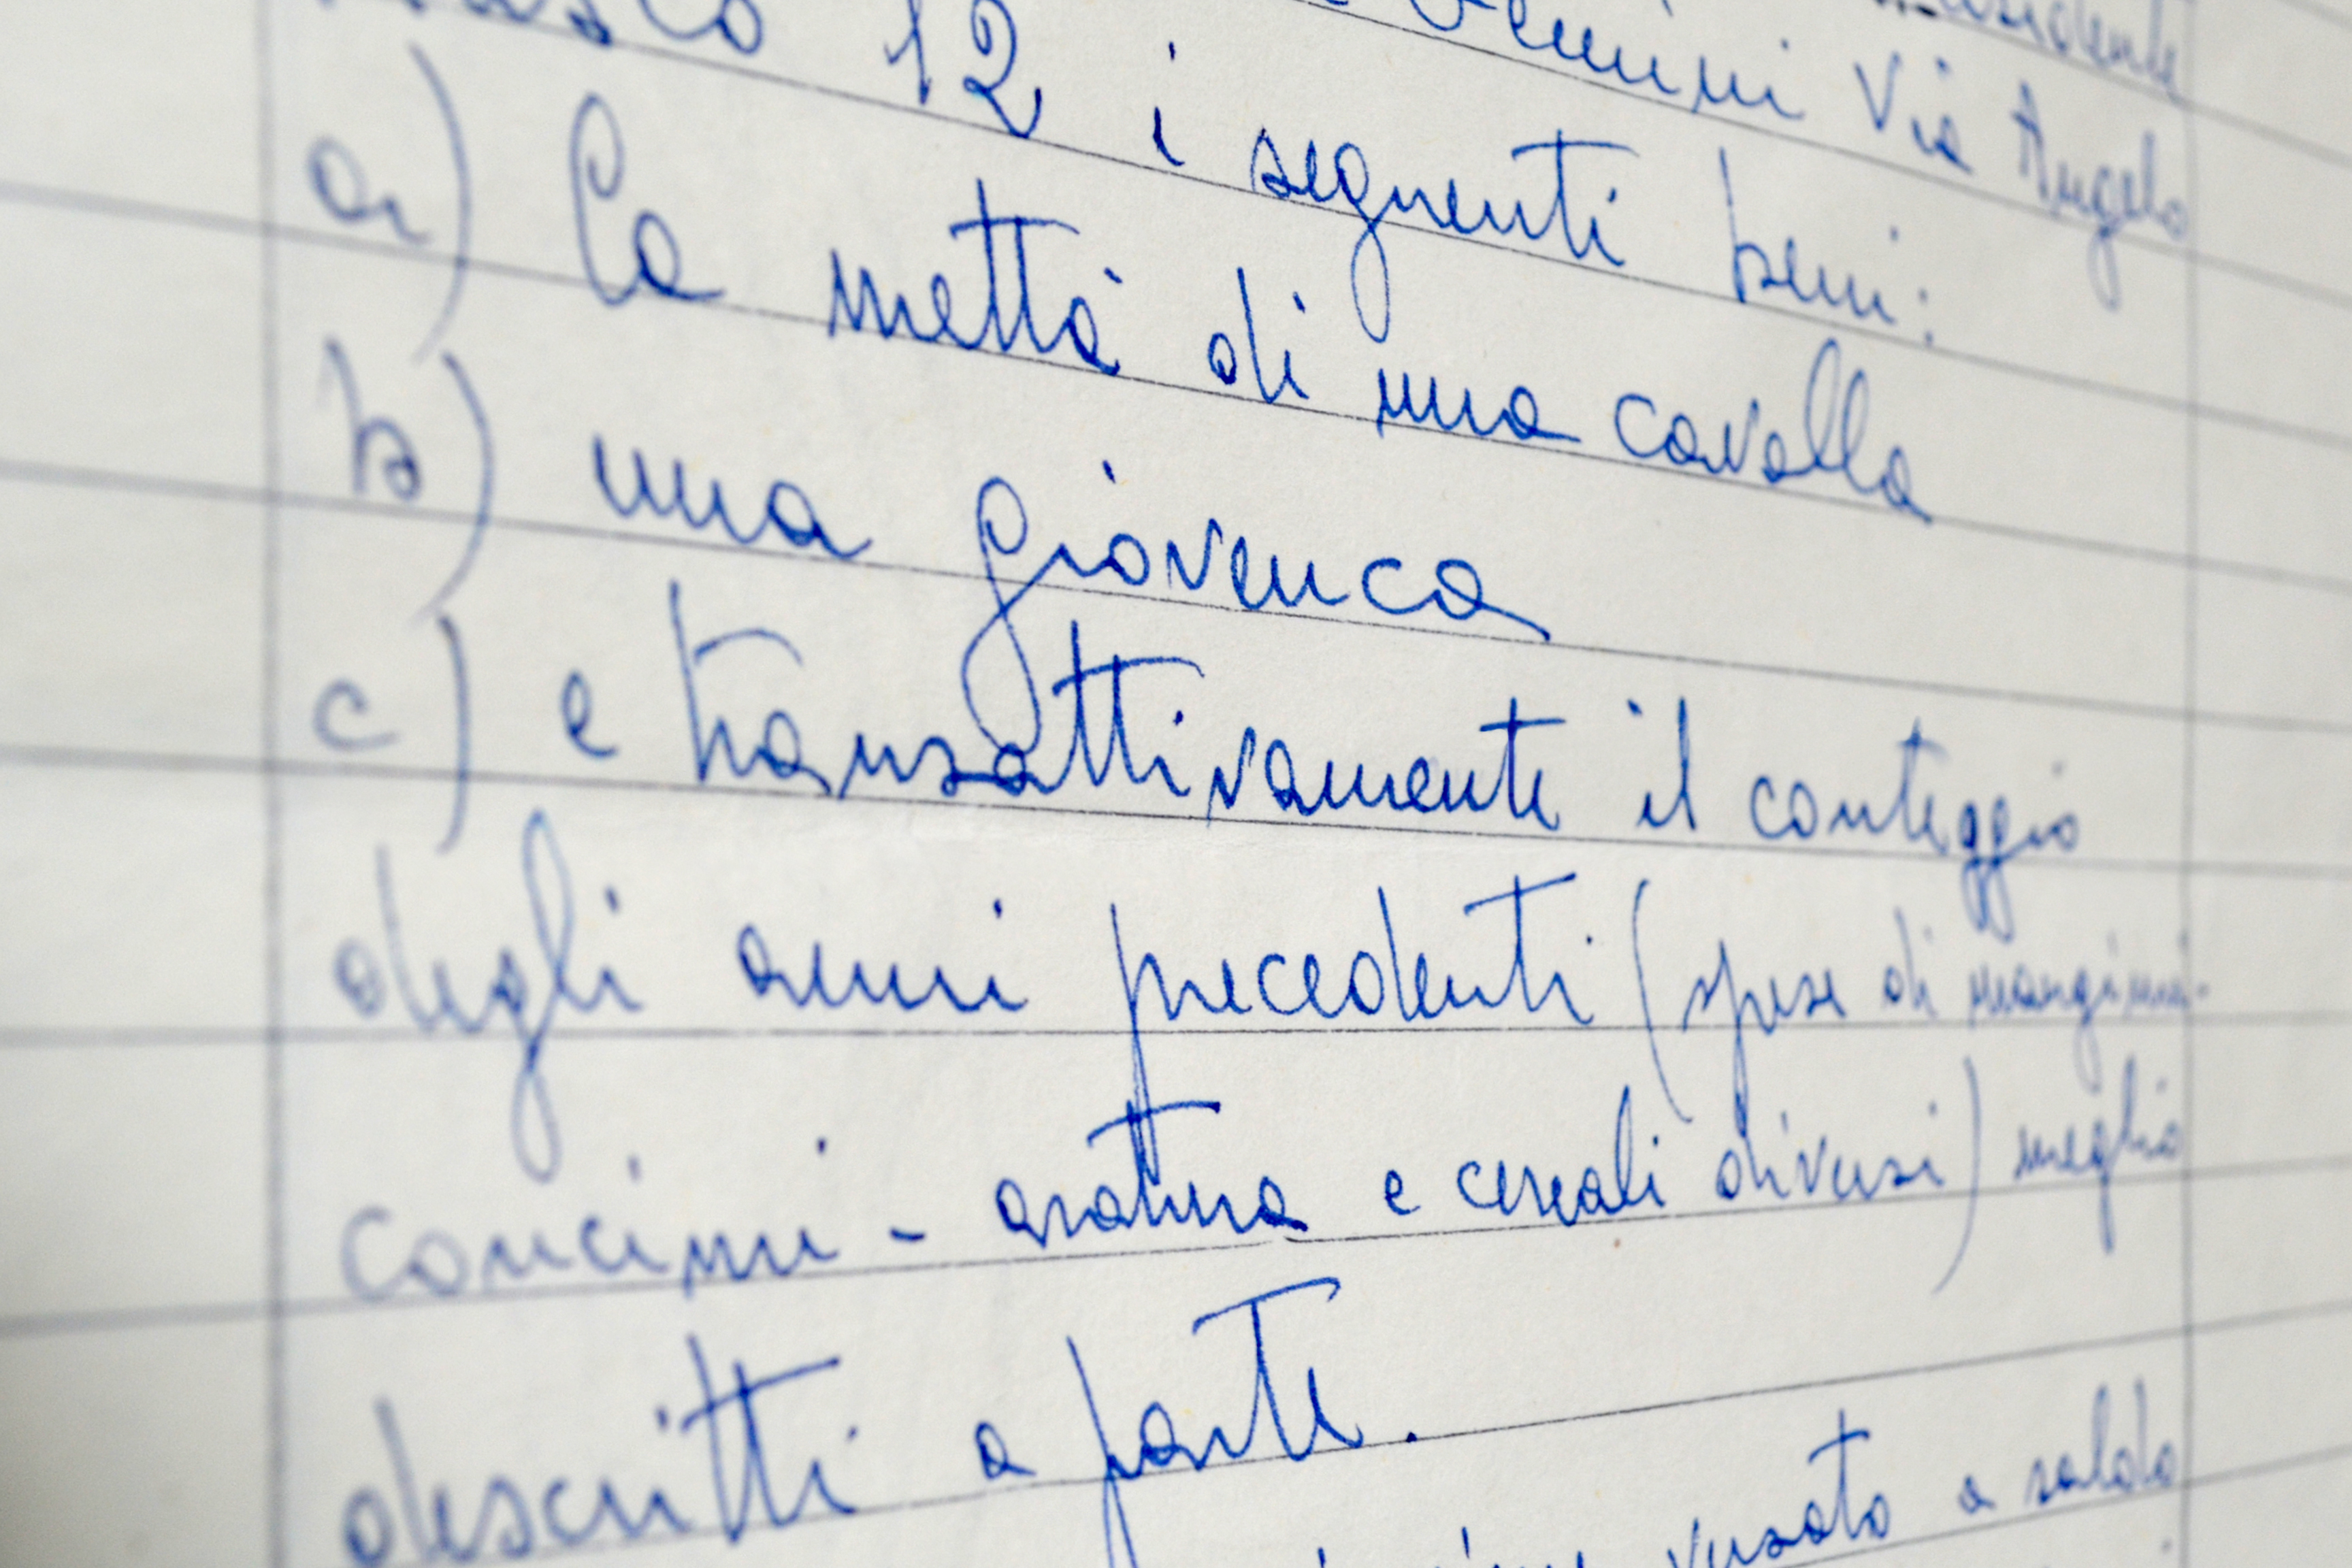 Via Angelo
12 i seguenti beni:
a) La mettà di una cavalla
b) una giovenca
c) e transattivamente il conteggio
degli anni precedenti (spese di mangimi-
concimi - aratura e cereali diversi) meglio
descritti a parte.
versato a saldo